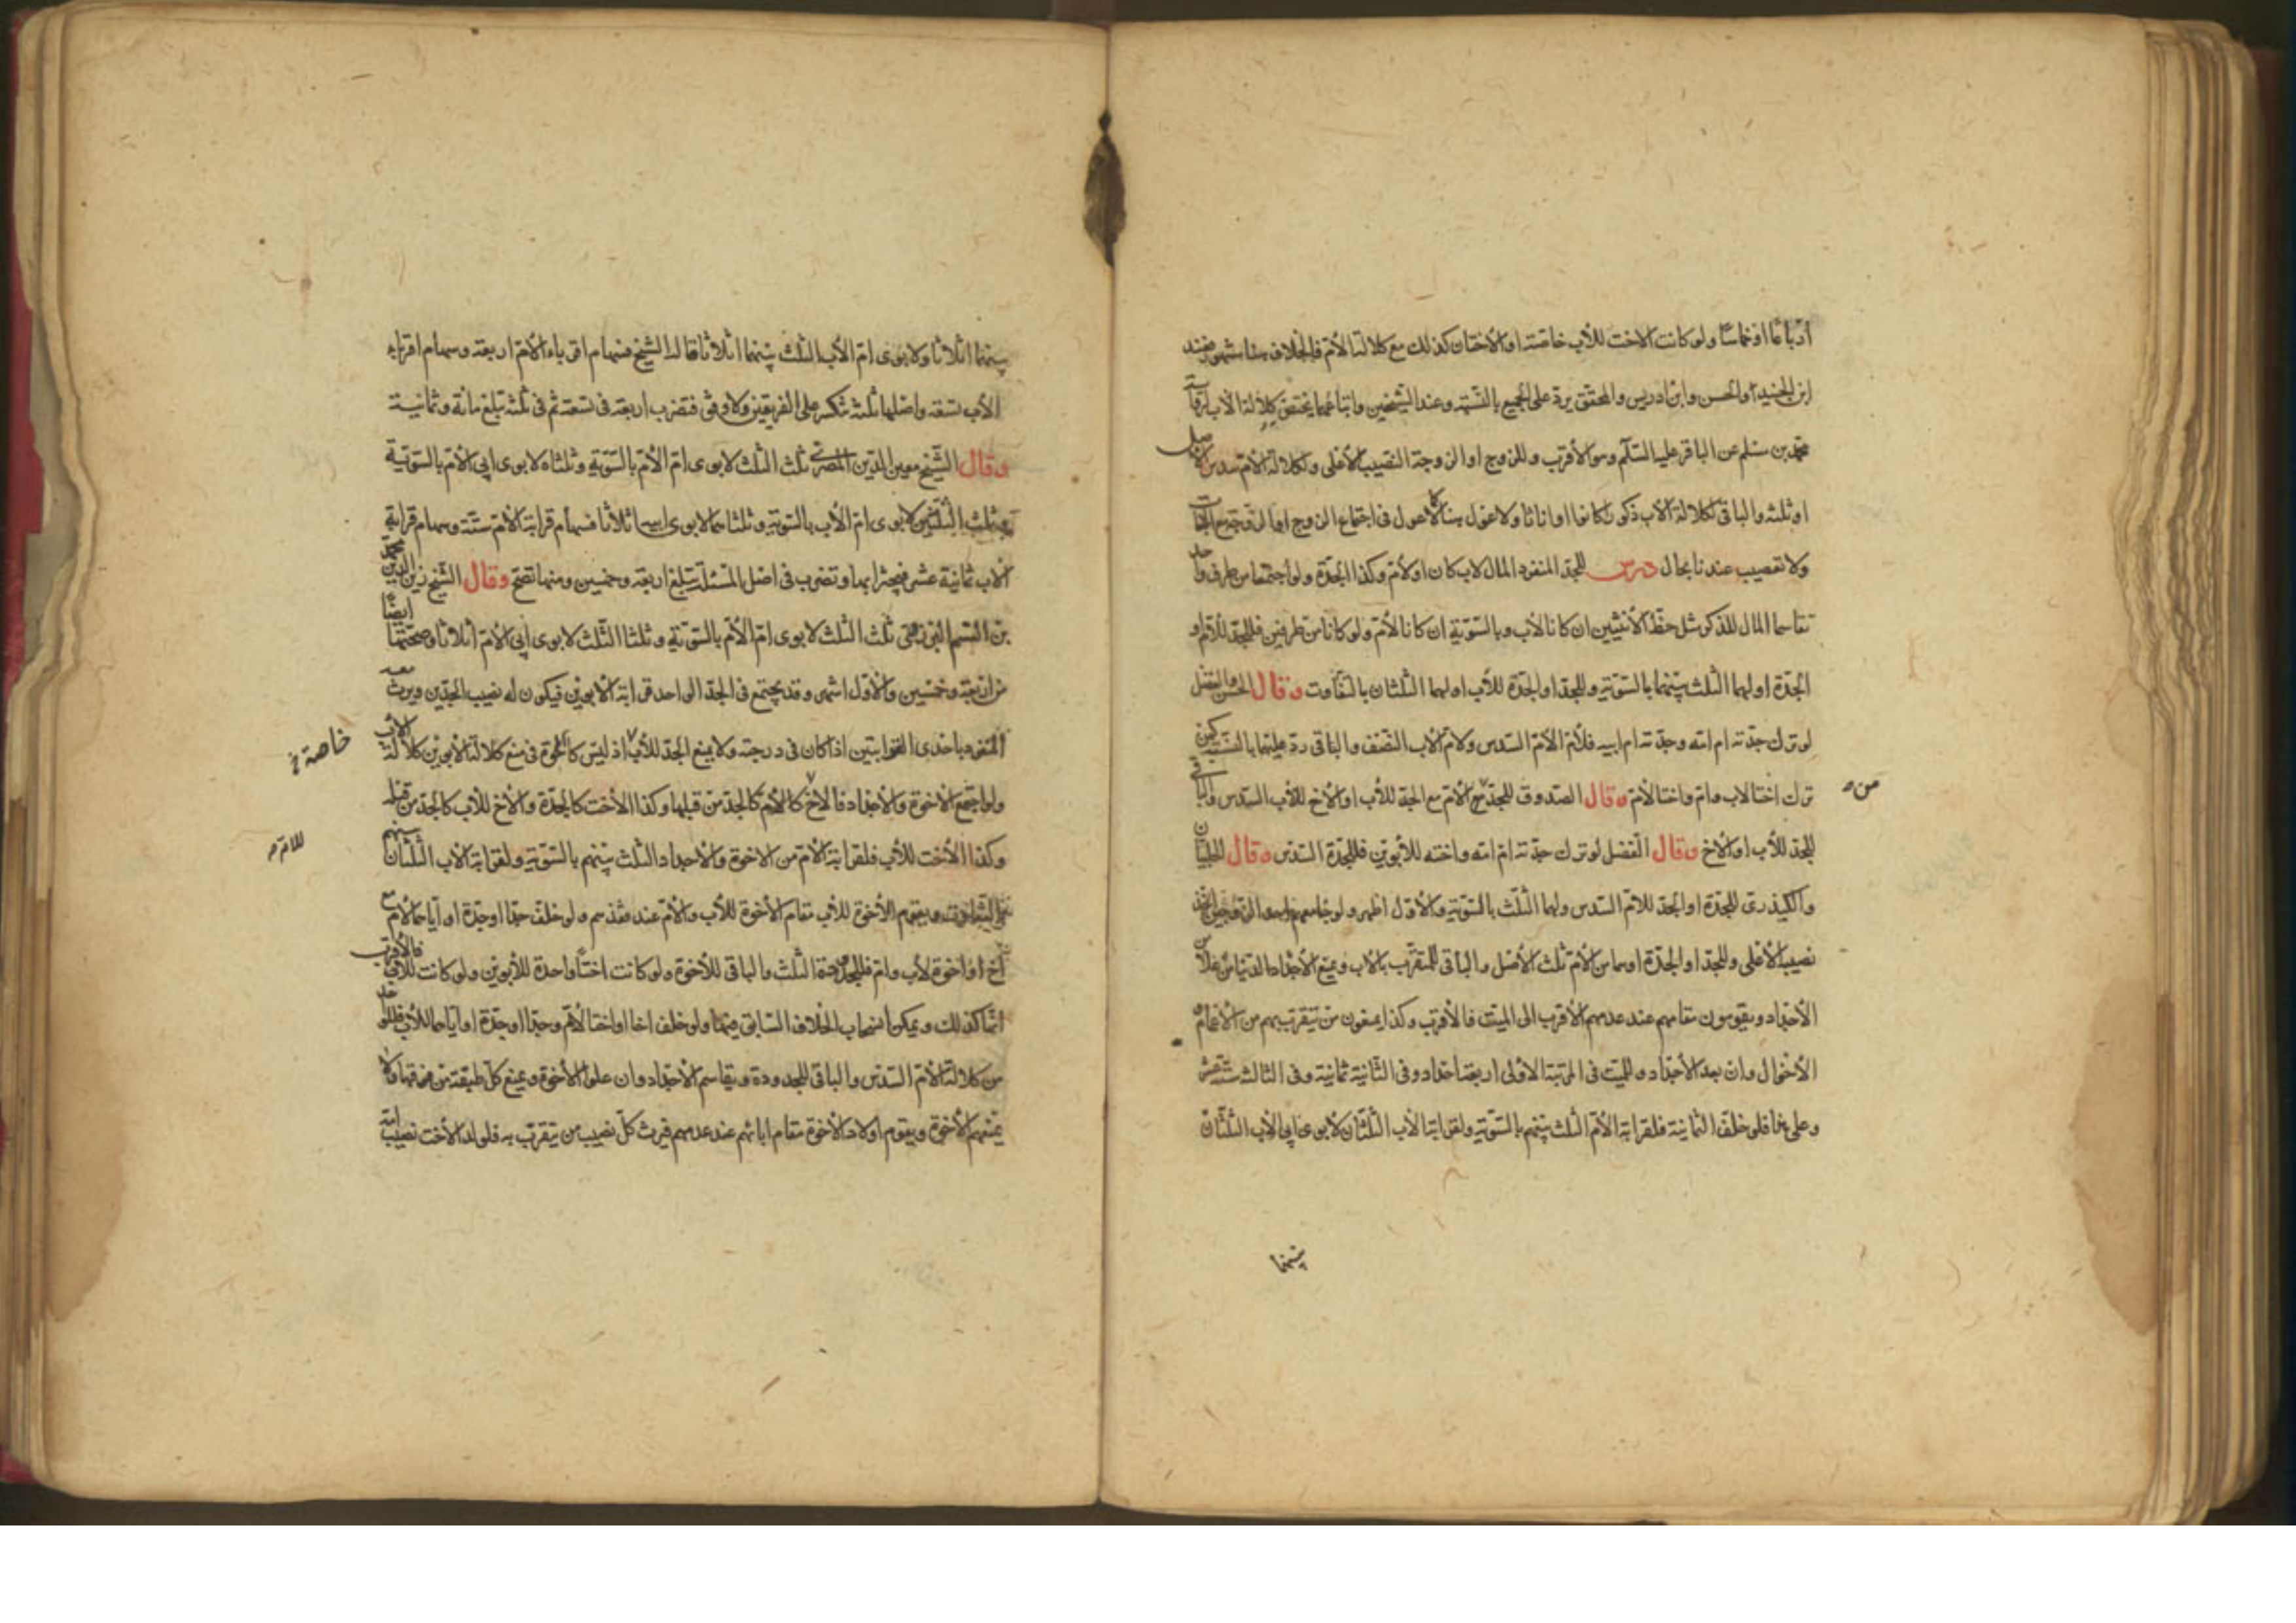 أرباعا أو أخماسا ولو كانت الاخت للأب خاصّة او الأختان كذلك مع كلالة الأم فالخلاف هنا مشهور فعند
ابن الجنيد والحسن وابن ادريس والمحقق يردّ على الجميع بالنسبة وعند الشيخين واتباعهما يختص كلالة الأب لرواية
محمد بن مسلم عن الباقر عليه السّلم وهو الأقرب وللزوج او الزوجة النصيب الأعلى ولكلالة الأم سدس الأصل
او ثلثه والباقى لكلالة الأب ذكورا كانوا او اناثا ولا عول هنا كما لا عول فى اجتماع الزوج او الزوجة مع
ولا تعصيب عندنا بحال درس للجدّ المنفرد المال لاب كان او لأم وكذا الجدّة ولو اجتمعا من طرف واحد
تقاسما المال للذكر مثل حظّ الأنثيين ان كانا لأب وبالسّويّة ان كانا لأم ولو كانا من طرفين فللجدّ للأم او
الجدّة او لهما الثلث بينهما بالسّويّة وللجدّ او الجدّة للأب او لهما الثلثان بالتفاوت وقال الحسن والفضل
لو ترك جدّته ام امّه وجدّته ام ابيه فلأم الأم السّدس ولام الأب النصف والباقى ردّ عليهما بالنسبة كمن
ترك اختا لاب وام واختا لأم وقال الصدوق للجدّ من الأم مع الجدّ للأب او الأخ للأب السّدس والباقى
من
للجدّ للأب او الأخ وقال الفضل لو ترك جدّته ام امّه واخته للأبوين فللجدّة السّدس وقال الحلبيّان
والكيذرىّ للجدّة او الجدّ للأم السّدس ولهما الثلث بالسّويّة والأوّل اظهر ولو جامعهم احد الزوجين اخذ
نصيبه الأعلى وللجدّ او الجدّة او هما من الأم ثلث الأصل والباقى للمتقرّب بالأب ويمنع الأجداد الدّنيا من علا من
الأجداد ويقومون مقامهم عند عدمهم الأقرب الى الميّت فالأقرب وكذا يمنعون من يتقرّب بهم من الأعمام و
الأخوال وان بعد الأجداد وللميّت فى المرتبة الأولى اربعة اجداد وفى الثّانية ثمانية وفى الثالثه ستّة عشر
وعلى هذا فلو خلّف الثمانية فلقرابة الأم الثلث بينهم بالسّويّة ولقرابة الأب الثلثان لأبوى ابى الأب الثلثان
بينهما
بينهما اثلاثا ولابوى ام الأب الثلث بينهما اثلاثا قال الشيخ فسهام اقرباء الأم اربعة وسهام اقرباء
الأب تسعة واصلها ثلثة تنكسر على الفريقين ولا وفق فتضرب اربعة فى تسعة ثم فى ثلثه تبلغ مائة وثمانية
وقال الشّيخ معين الدّين المصرى ثلث الثلث لابوى ام الأم بالسّويّة وثلثاه لابوى ابى الأم بالسّويّة
وثلث الثلثين لابوى ام الأب بالسّويّة وثلثاهما لابوى ابيه اثلاثا فسهام قرابة الأم ستّة وسهام قرابة
الأب ثمانية عشر فيجتزأ بها وتضرب فى اصل المسئلة تبلغ اربعة وخمسين ومنها تصحّ وقال الشّيخ زين الدين محمد
بن القسم البرزهى ثلث الثلث لابوى ام الأم بالسّويّة وثلثا الثلث لابوى ابى الأم اثلاثا وصحّتها ايضا
من اربعة وخمسين والأوّل اشهر وقد يجتمع فى الجدّ الواحد قرابة الأبوين فيكون له نصيب الجدّين ويرث معه
المنفرد باحدى القرابتين اذا كان فى درجته ولا يمنع الجدّ للأب اذ ليس كالأخوة فى منع كلالة الأبوين كلالة الأب
خاصة
ولو اجتمع الأخوة والأجداد فالأخ للأم كالجدّ من قبلها وكذا الأخت كالجدّة والأخ للأب كالجدّ من قبله
وكذا الأخت للأب فلقرابة الأم من الاخوة والأجداد الثلث بينهم بالسّويّة ولقرابة الأب الثلثان بينهم
للام
بالتفاوت ويقوم الأخوة للأب مقام الأخوة للأب والأم عند عدمهم ولو خلّف جدّا او جدّة او اياهما لأم مع
اخ او اخوة لأب وام فللجدودة الثلث والباقى للأخوة ولو كانت اختا واحدة للأبوين ولو كانت للأب فالأقرب
انّها كذلك ويمكن انسحاب الخلاف السّابق فيها ولو خلف اخا او اختا لأم وجدّا او جدّة او اياهما للأب فللواحد
من كلالة الأم السّدس والباقى للجدودة ويقاسم الأجداد وان علوا الأخوة ويمنع كلّ طبقة من فوقها ولا
يمنعهم الأخوة ويقوم اولاد الأخوة مقام ابائهم عند عدمهم فيرث كلّ نصيب من يتقرّب به فلولد الأخت نصيب امّه